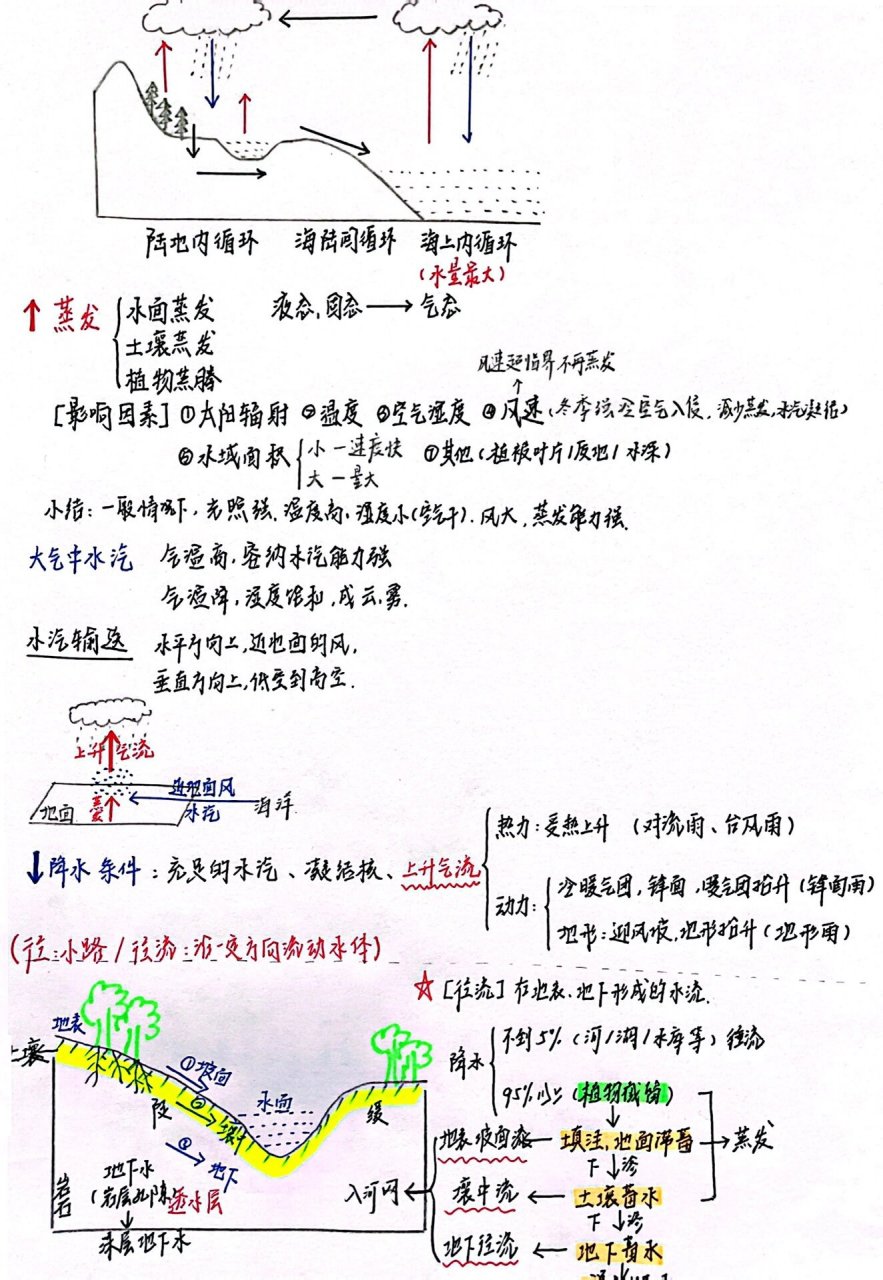 陆地内循环 海陆间循环 海上内循环
(水量最大)
↑ 蒸发 水面蒸发 液态,固态 → 气态
土壤蒸发
植物蒸腾
风速超临界不再蒸发
[影响因素] ①太阳辐射 ②温度 ③空气湿度 ④风速(冬季强冷空气入侵,减少蒸发,水汽凝结)
⑤水域面积 小-速度快 ⑦其他(植被叶片/反地/水深)
大-量大
小结:一般情况下,光照强,温度高,湿度小(空气干),风大,蒸发能力强.
大气中水汽 气温高,容纳水汽能力强
气温降,湿度饱和,成云雾.
水汽输送 水平方向上,近地面的风,
垂直方向上,低空到高空.
上升气流
近地面风
地面 蒸发 水汽 海洋
热力:受热上升 (对流雨、台风雨)
↓降水条件:充足的水汽、凝结核、上升气流
动力: 冷暖气团,锋面,暖气团抬升(锋面雨)
地形:迎风坡,地形抬升(地形雨)
(径:小路/径流:沿一定方向流动水体)
☆[径流]在地表、地下形成的水流.
地表
土壤
①坡面
陡 ② 壤中
水面
缓
③ 地下
岩石
地下水
(岩层孔隙)透水层
深层地下水
降水 不到5% (河/湖/水库等) 径流
95%以上(植物截留)
地表坡面流 ← 填洼,地面滞蓄 → 蒸发
下↓渗
入河网 ← 壤中流 ← 土壤蓄水
下↓渗
地下径流 ← 地下蓄水